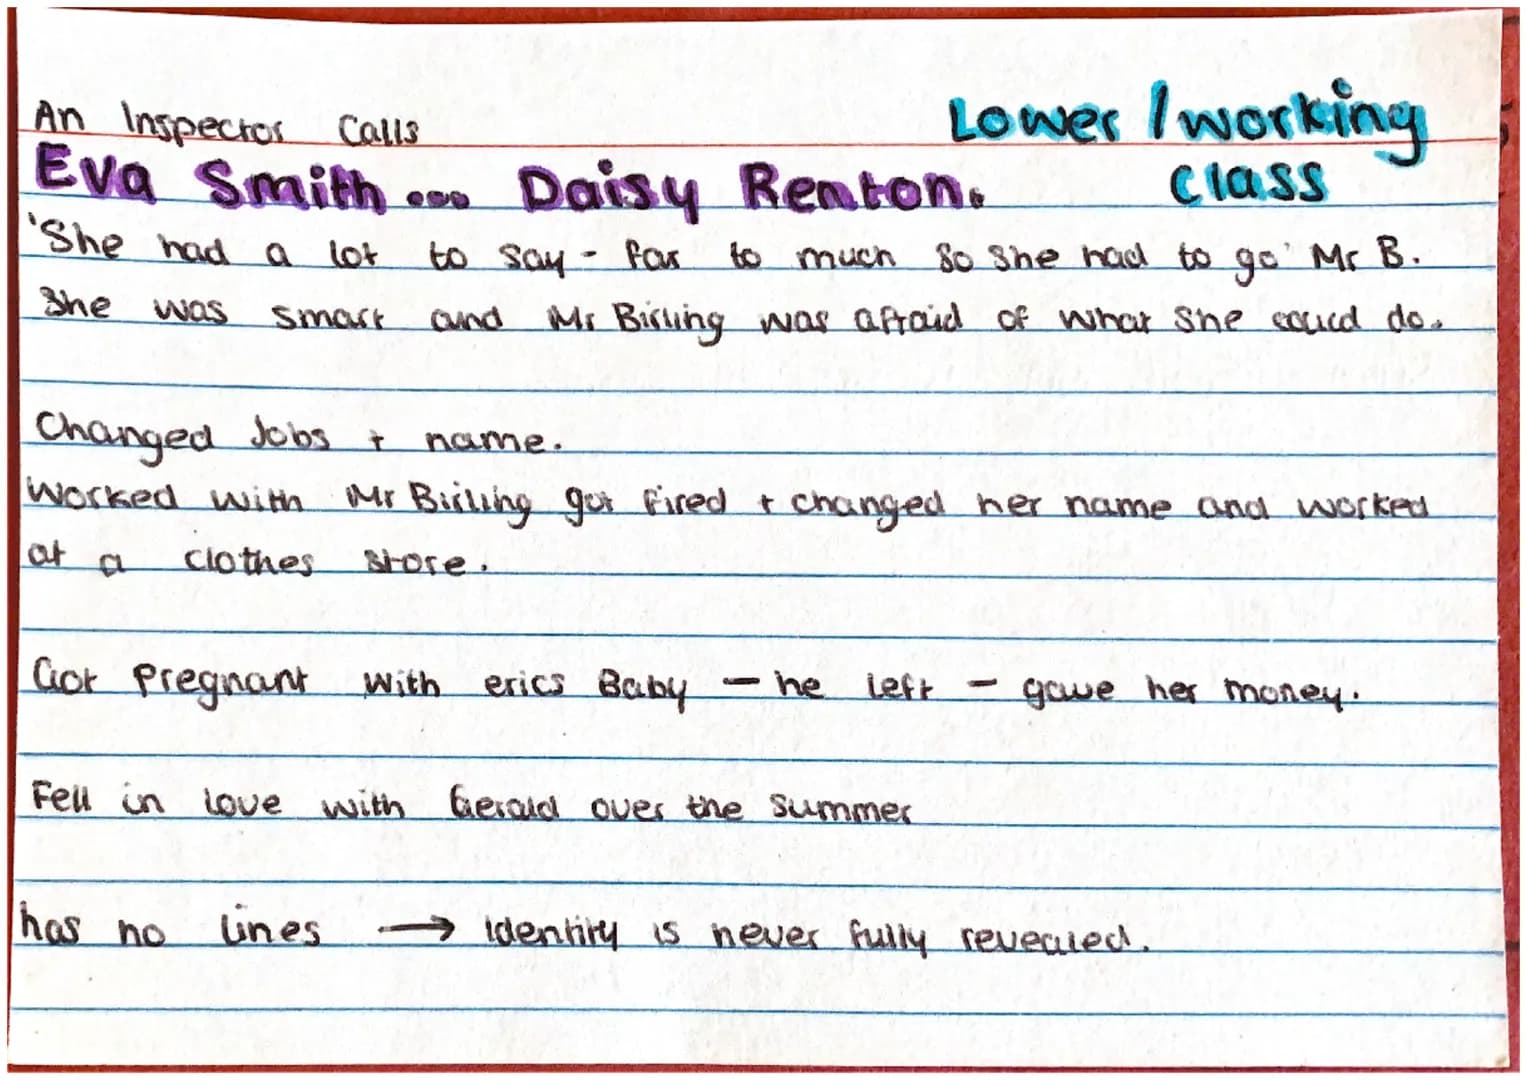 An Inspector Calls
Lower / working
class
Eva Smith... Daisy Renton.
'She had a lot to say - far to much so she had to go' Mr B.
She was smart and Mr Birling was afraid of what she could do.
Changed Jobs + name.
Worked with Mr Birling got fired + changed her name and worked
at a clothes store.
Got Pregnant with erics Baby - he left - gave her money.
Fell in love with Gerald over the summer
has no lines → identity is never fully revealed.